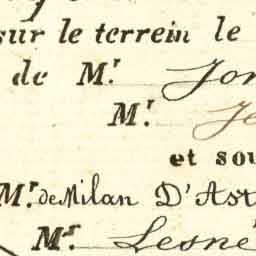 sur le terrein le
de Mr.
Mr.
et sou
Mr. de Milan D'Ast
Mr. Lesné